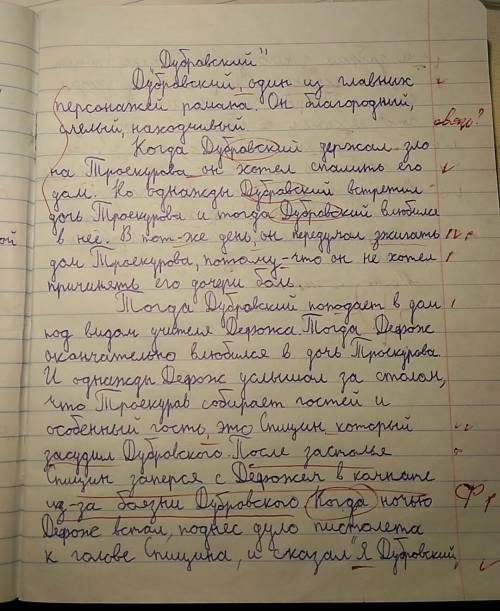 „Дубровский"
Дубровский, один из главних
персонажей романа. Он благородний,
смелый, находчивый.
связь?
Когда Дубровский держал зло
на Троекурова он хотел спалить его
дом. Но однажды Дубровский встретил
дочь Троекурова и тогда Дубровский влюбился
в неё. В тот-же день, он передумал зжигать
дом Троекурова, потому-что он не хотел
причинять его дочери боль.
Тогда Дубровский поподает в дом
под видом учителя Дефожа. Тогда Дефорж
окончательно влюбился в дочь Троекурова.
И однажды Дефорж услышал за столом,
что Троекурав собирает гостей и
особенный гость, это Спицин, который
засудил Дубровского. После застолье
Спицин заперся с Дефожем в комнате
из-за боязни Дубровского. Когда ночью
Дефорж встал, поднёс дуло пистолета
к голове Спицина, и сказал "Я Дубровский,
ой